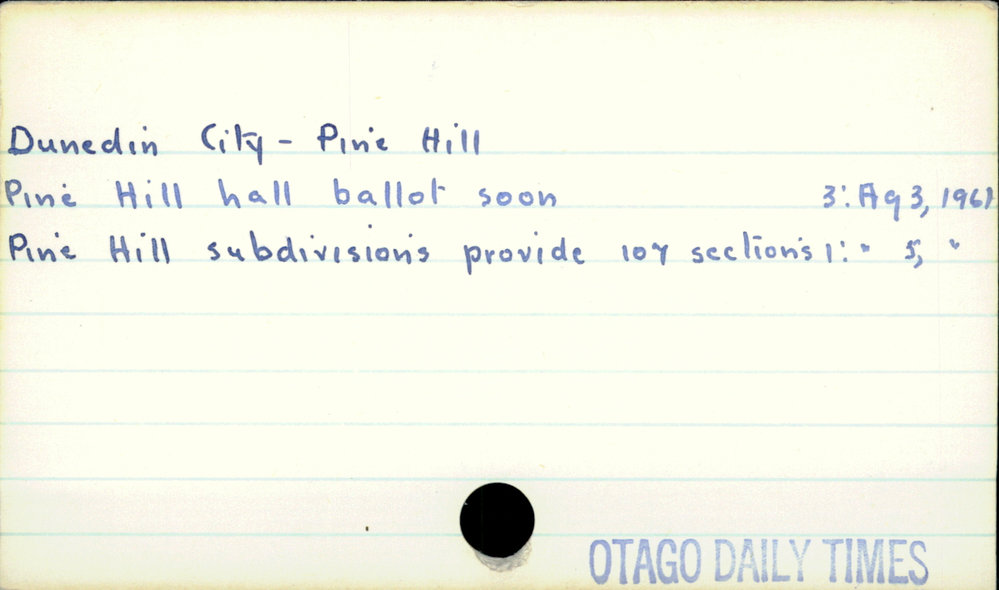 Dunedin City - Pine Hill
Pine Hill hall ballot soon 3: Ag 3, 1961
Pine Hill subdivisions provide 107 sections 1: " 5, "
OTAGO DAILY TIMES